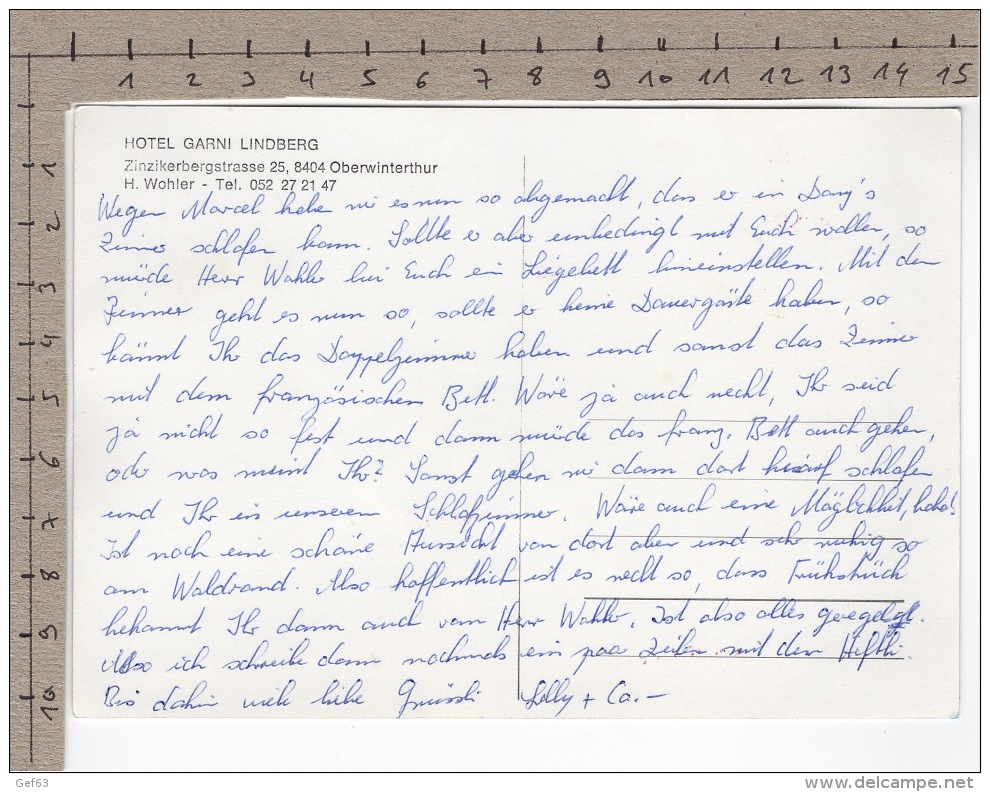 1 2 3 4 5 6 7 8 9 10 11 12 13 14 15
1
2
3
4
5
6
7
8
9
10
HOTEL GARNI LINDBERG
Zinzikerbergstrasse 25, 8404 Oberwinterthur
H. Wohler - Tel. 052 27 21 47
Wegen Marcel habe wir es nun so abgemacht, dass er in Dany's
Zimmer schlafen kann. Sollte er aber unbedingt mit Euch wollen, so
würde Herr Wohler bei Euch ein Liegebett hineinstellen. Mit den
Zimmer geht es nun so, sollte er keine Dauergäste haben, so
könnt Ihr das Doppelzimmer haben und sonst das Zimmer
mit dem französischen Bett. Wäre ja auch recht, Ihr seid
ja nicht so fest und dann würde das franz. Bett auch gehen,
oder was meint Ihr? Sonst gehen wir dann dort hinauf schlafen
und Ihr in unserem Schlafzimmer. Wäre auch eine Möglichkeit, haha!
Ist noch eine schöne Aussicht von dort aber und sehr ruhig so
am Waldrand. Also hoffentlich ist es recht so, dass Frühstück
bekommt Ihr dann auch von Herr Wohler. Ist also alles geregelt.
Also ich schreibe dann nochmals ein paar Zeilen mit den Heftli.
Bis dahin viele liebe Grüssli Lilly + Co.-
Gef63
www.delcampe.net